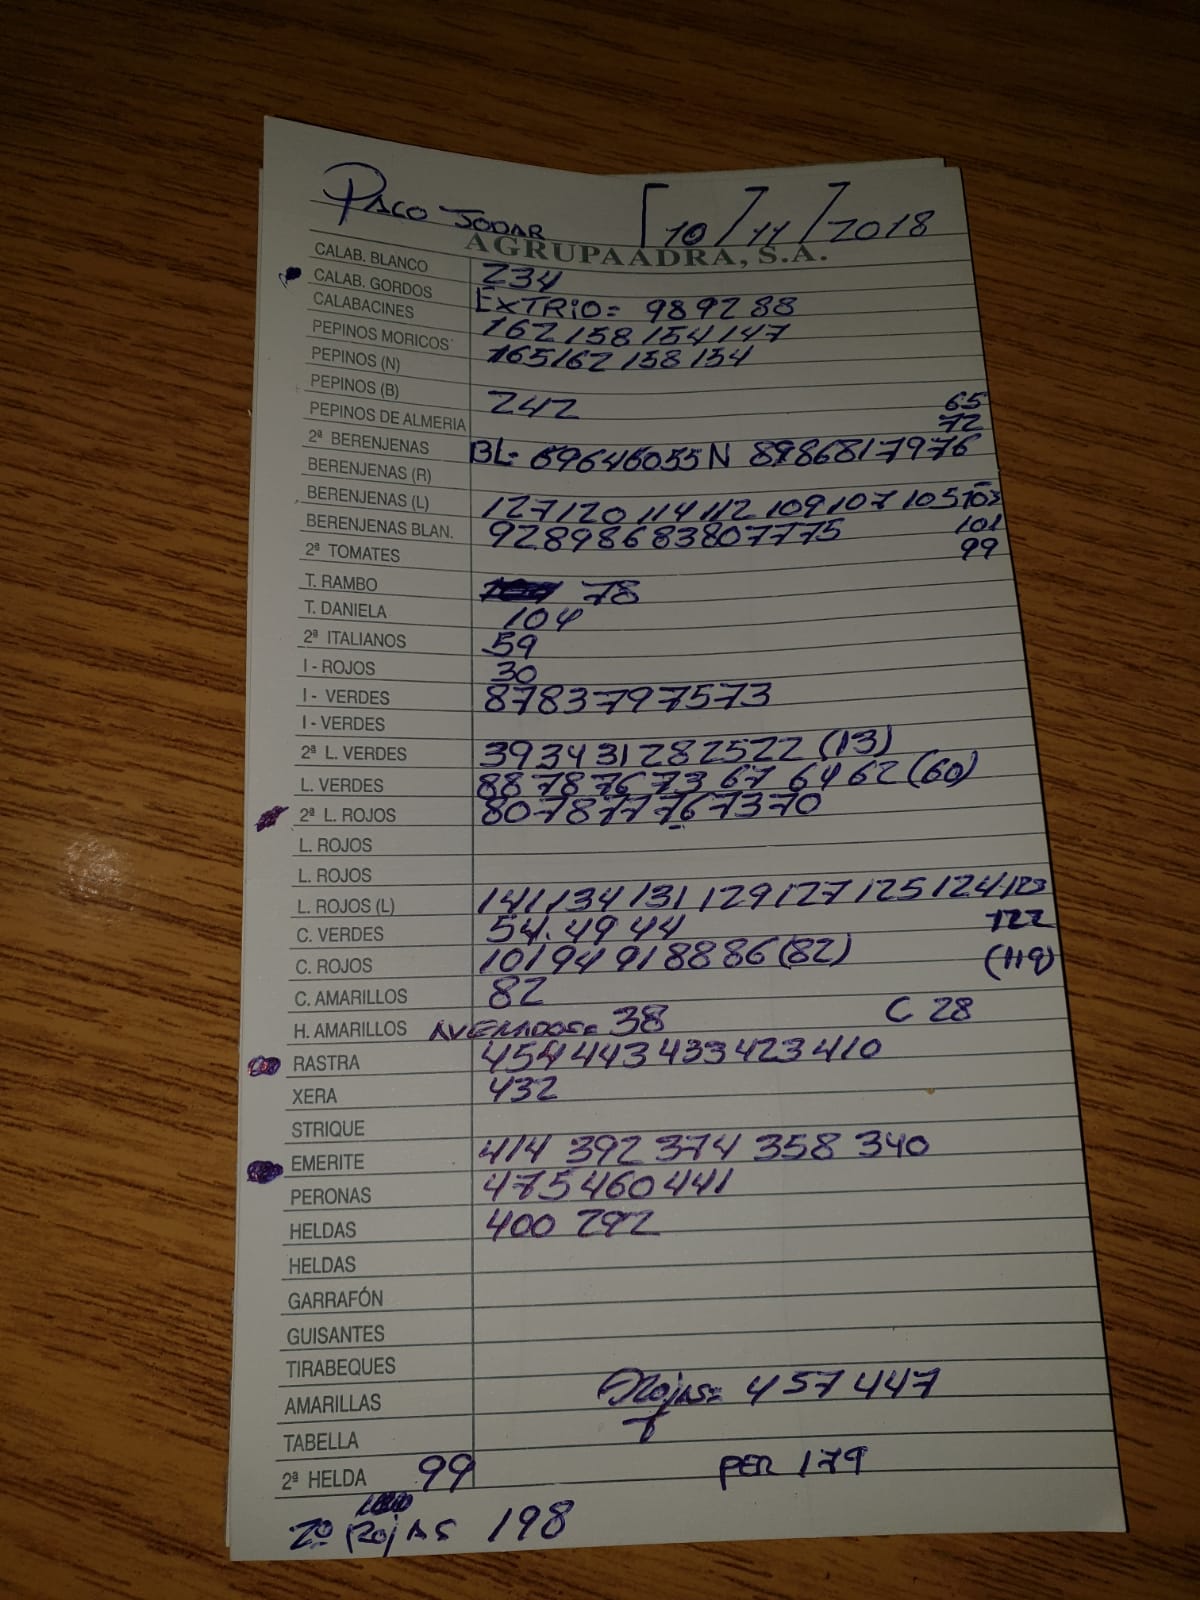 PACO JODAR 10/11/2018
AGRUPAADRA, S.A.
CALAB. BLANCO
CALAB. GORDOS 234
CALABACINES EXTRIO= 98 92 88
PEPINOS MORICOS 162 158 154 147
PEPINOS (N) 165 162 158 154
PEPINOS (B)
PEPINOS DE ALMERIA 242 65
2ª BERENJENAS 72
BERENJENAS (R) BL- 69 64 60 55 N 89 86 81 79 76
BERENJENAS (L) 127 120 114 112 109 107 105 103
BERENJENAS BLAN. 92 89 86 83 80 77 75 101
2ª TOMATES 99
T. RAMBO 78
T. DANIELA 104
2ª ITALIANOS 59
I - ROJOS 30
I - VERDES 87 83 79 75 73
I - VERDES
2ª L. VERDES 39 34 31 28 25 22 (13)
L. VERDES 88 78 76 73 67 64 62 (60)
2ª L. ROJOS 80 78 77 76 73 70
L. ROJOS
L. ROJOS
L. ROJOS (L) 141 134 131 129 127 125 124 123
C. VERDES 54. 49 44 122
C. ROJOS 101 94 91 88 86 (82) (119)
C. AMARILLOS 82
H. AMARILLOS 38 C 28
RASTRA 454 443 433 423 410
XERA 432
STRIQUE
EMERITE 414 392 374 358 340
PERONAS 475 460 441
HELDAS 400 292
HELDAS
GARRAFÓN
GUISANTES
TIRABEQUES
AMARILLAS ROJAS= 457 447
TABELLA
2ª HELDA 99 PER 179
2º ROJAS 198